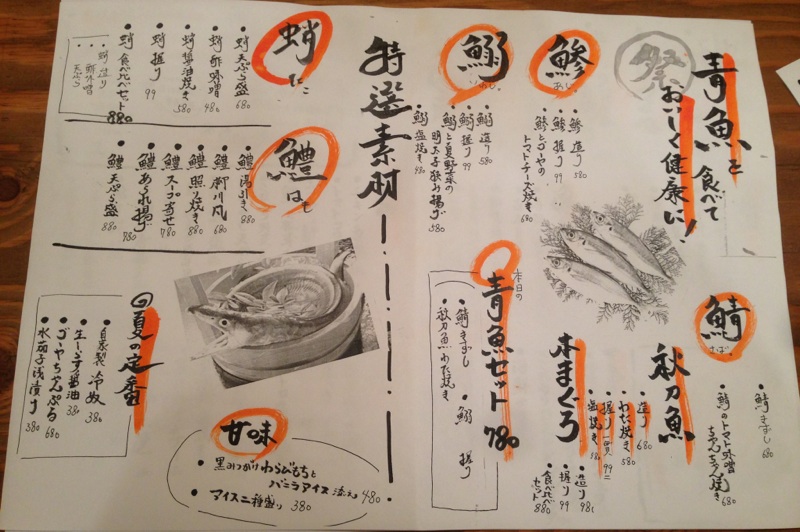 青魚を食べて
おいしく健康に!
祭
鯵
あじ
鯵 造り 580
鯵 握り 99
鯵とゴーヤの
トマトチーズ焼き 680
鰯
鰯 造り 580
鰯 握り 99
鰯と夏野菜の
明太子挟み揚げ 580
鰯 塩焼き 480
鯖
さば
鯖きずし 680
鯖のトマト味噌
ちゃんちゃん焼き 680
秋刀魚
造り 680
わた焼き 580
握り 一貫 99
塩焼き
本まぐろ
造り 980
握り 99
食べ比べ
セット 880
本日の
青魚セット 780
鯖きずし 鰯 握り
秋刀魚わた焼き
特選素材
蛸
たこ
蛸 天ぷら盛 680
蛸 酢味噌 480
蛸 醤油焼き 580
蛸 握り 99
蛸 食べ比べセット 880
蛸造り
酢味噌
天ぷら
鱧
はも
鱧 湯引き 880
鱧 柳川風 680
鱧 照り焼き 880
鱧 スープ寄せ 780
鱧 あられ揚げ 780
鱧 天ぷら盛 880
夏の定番
自家製 冷奴 380
生しらす醤油 380
ゴーヤちゃんぷる 680
水茄子浅漬け 380
甘味
黒みつがけわらびもちと
バニラアイス添え 480
アイス二種盛り 380